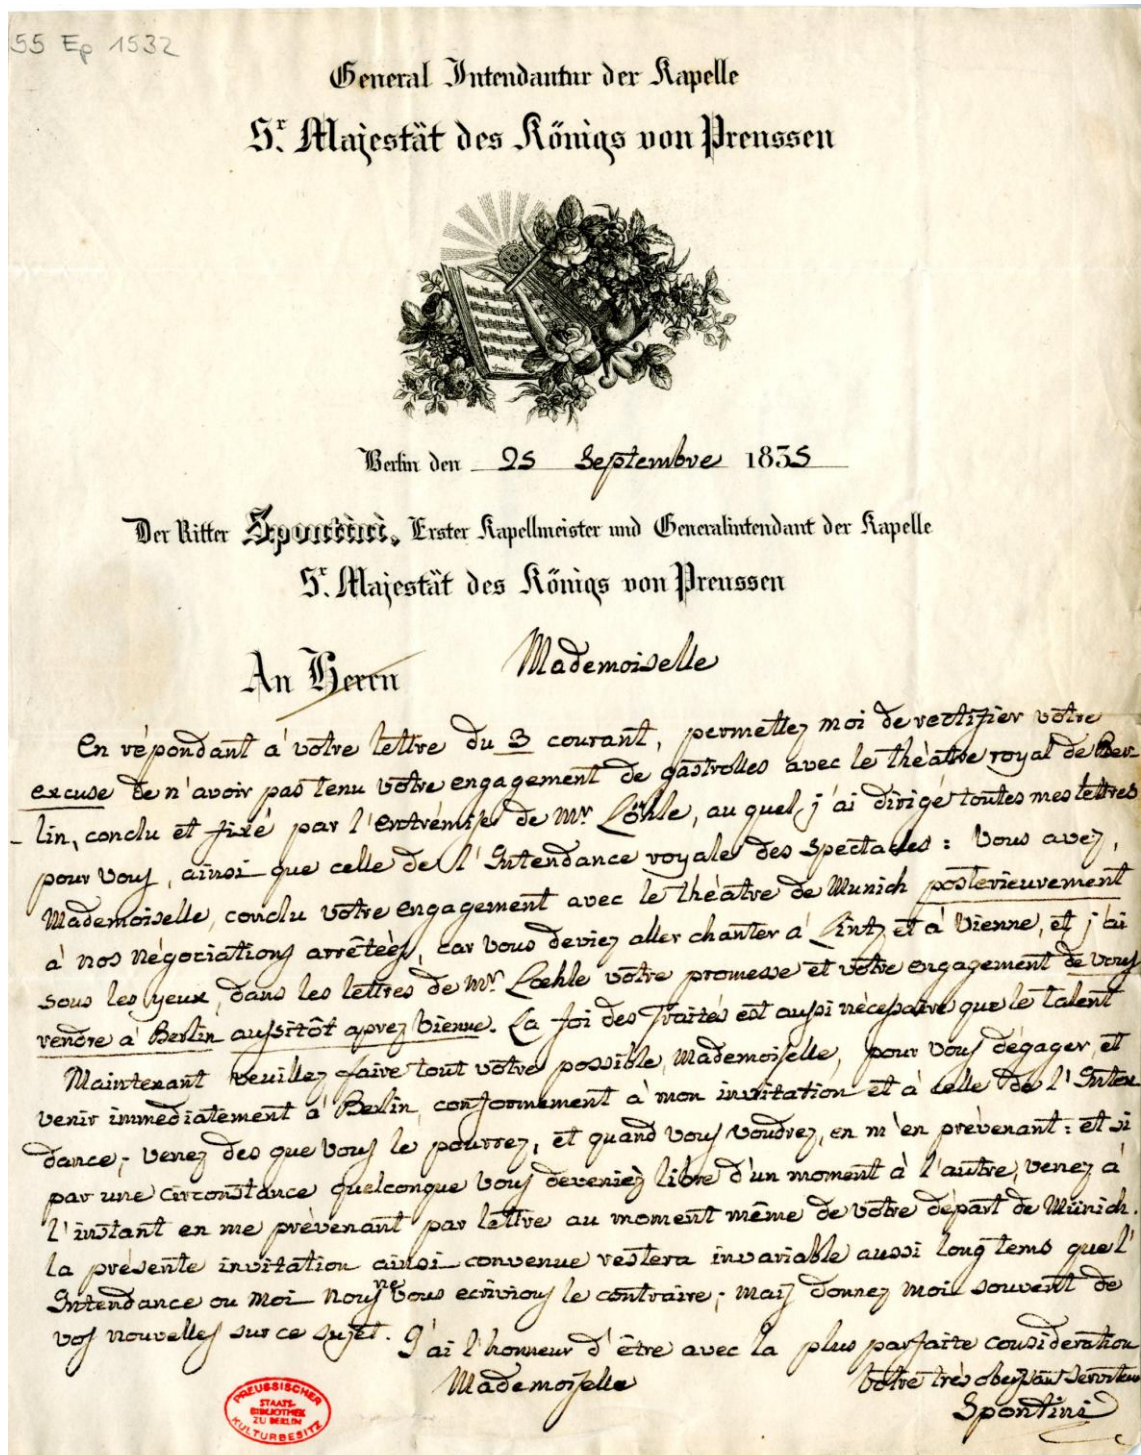 55 Ep 1532
General Intendantur der Kapelle
Sr. Majestät des Königs von Preussen
Berlin den 25 Septembre 1835
Der Ritter Spontini, Erster Kapellmeister und Generalintendant der Kapelle
Sr. Majestät des Königs von Preussen
An Herrn Mademoiselle
En répondant à votre lettre du 3 courant, permettez moi de rectifier votre
excuse de n'avoir pas tenu votre engagement de gastrolles avec le théatre royal de Ber-
- lin, conclu et fixé par l'entrémise de Mr Löhle, au quel j'ai dirigé toutes mes lettres
pour vous, ainsi que celle de l'Intendance royale des Spectacles : Vous avez,
Mademoiselle, conclu votre engagement avec le théatre de Munich posterieurement
à nos négociations arrêtées, car vous deviez aller chanter à Lintz et à Vienne, et j'ai
sous les yeux, dans les lettres de Mr. Loehle votre promesse et votre engagement de vous
rendre à Berlin aussitôt aprez Vienne. La foi des Traités est aussi nécessaire que le talent
Maintenant veuillez faire tout votre possible, Mademoiselle, pour vous dégager, et
venir immédiatement à Berlin, conformement à mon invitation et à celle de l'Inten
dance ; venez des que vous le pourrez, et quand vous voudrez, en m'en prévenant : et si
par une circonstance quelconque vous deveniez libre d'un moment à l'autre, venez à
l'instant en me prévenant par lettre au moment même de votre départ de Münich.
la présente invitation ainsi convenue restera invariable aussi long tems que l'
Intendance ou moi nous ne vous ecrivions le contraire ; mais donnez moi souvent de
vos nouvelles sur ce sujet. J'ai l'honneur d'être avec la plus parfaite consideration
Mademoiselle votre très obeissant serviteur
Spontini
PREUSSISCHER
STAATS-
BIBLIOTHEK
ZU BERLIN
KULTURBESITZ